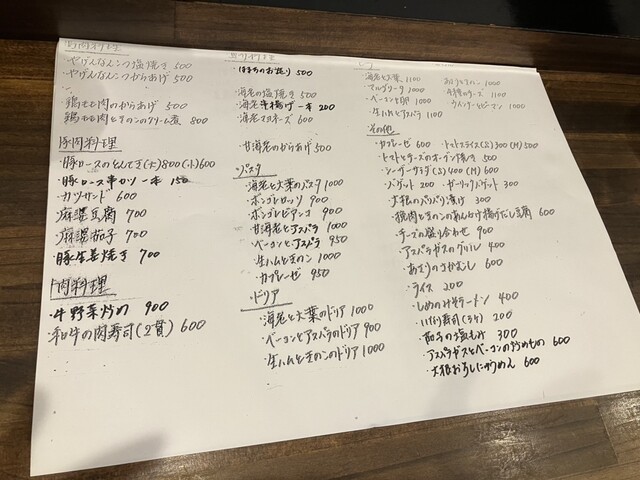 鳥肉料理
・やげんなんこつ塩焼き 500
・やげんなんこつからあげ 500
・鶏もも肉のからあげ 500
・鶏もも肉ときのこのクリーム煮 800
豚肉料理
・豚ロースのとんてき(大)800(小)600
・豚ロース串カツ 一本 150
・カツサンド 600
・麻婆豆腐 700
・麻婆茄子 700
・豚生姜焼き 700
肉料理
・牛野菜炒め 900
・和牛の肉寿司(2貫) 600
・はまちのお造り 500
・海老の塩焼き 500
・海老串揚げ 一本 200
・海老マヨネーズ 600
・甘海老のからあげ 500
・パスタ
・海老と大葉のパスタ 1000
・ボンゴレロッソ 900
・ボンゴレビアンコ 900
・甘海老とアスパラ 1000
・ベーコンとアスパラ 950
・生ハムときのこ 1000
・カプレーゼ 950
・ドリア
・海老と大葉のドリア 1000
・ベーコンとアスパラのドリア 900
・生ハムときのこのドリア 1000
・海老と大葉 1100
・マルゲリータ 1000
・ベーコンと卵 1000
・生ハムとアスパラ 1100
1000
1100
・ウインナーとピーマン 1000
その他
・カプレーゼ 600 ・トマトスライス(S)300(M)500
・トマトとチーズのオーブン焼き 500
・シーザーサラダ(S)400(M)600
・バゲット 200 ・ガーリックバゲット 300
・大根のパリパリ漬け 300
・挽肉ときのこのあんかけ揚げだし豆腐 600
・チーズの盛り合わせ 900
・アスパラガスのグリル 400
・あさりのさかむし 600
・ライス 200
・しめのみそラーメン 400
・いなり寿司(3ケ) 200
・茄子の塩もみ 300
・アスパラガスとベーコンの炒めもの 600
・大根おろしにゅうめん 600